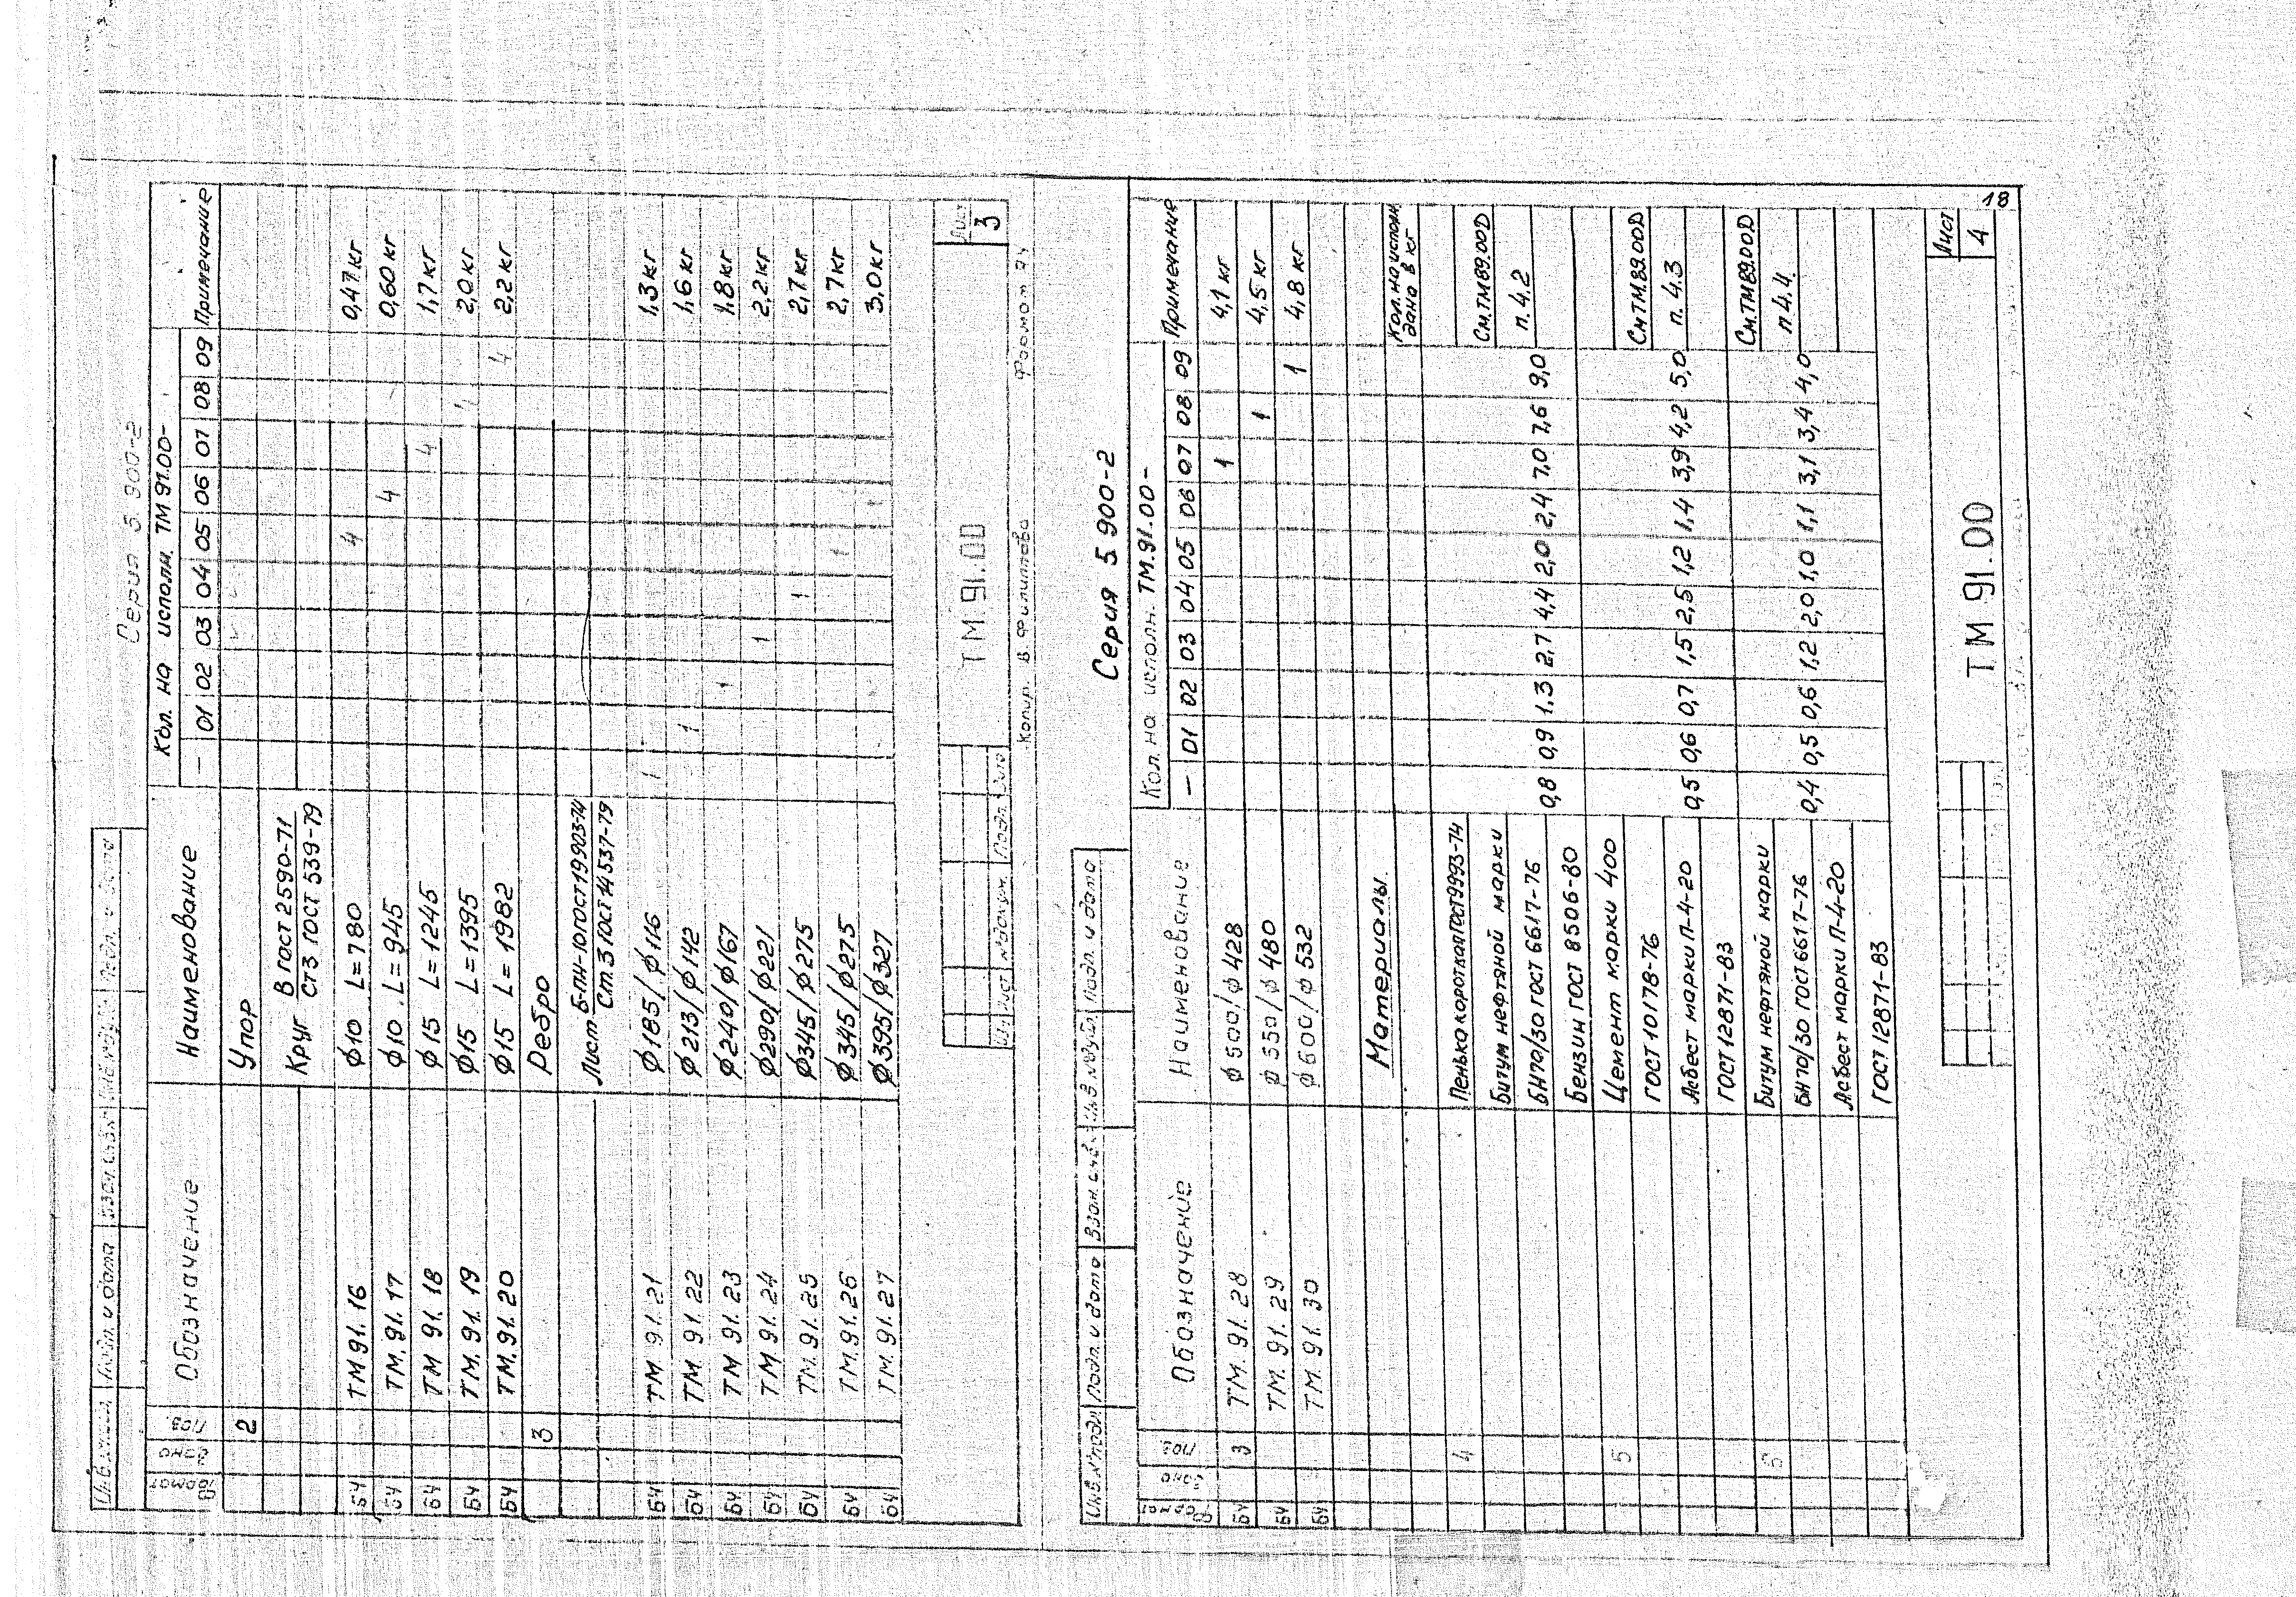 Серия 5.900-2
Формат Поз. Обозначение Наименование Кол. на исполн. ТМ 91.00- Примечание
— 01 02 03 04 05 06 07 08 09
2 Упор
Круг В ГОСТ 2590-71
Ст3 ГОСТ 539-79
БЧ ТМ 91.16 ϕ10 L=780 4 0,47 кг
БЧ ТМ.91.17 ϕ10 L=945 4 0,60 кг
БЧ ТМ 91.18 ϕ15 L=1245 4 1,7 кг
БЧ ТМ.91.19 ϕ15 L=1395 2,0 кг
БЧ ТМ.91.20 ϕ15 L=1982 4 2,2 кг
3 Ребро
Лист Б-ПН-10 ГОСТ 19903-74
Ст.3 ГОСТ 14537-79
БЧ ТМ 91.21 ϕ185/ϕ116 1 1,3 кг
БЧ ТМ 91.22 ϕ213/ϕ142 1 1,6 кг
БЧ ТМ 91.23 ϕ240/ϕ167 1 1,8 кг
БЧ ТМ 91.24 ϕ290/ϕ221 1 2,2 кг
БЧ ТМ.91.25 ϕ345/ϕ275 1 2,7 кг
БЧ ТМ.91.26 ϕ345/ϕ275 1 2,7 кг
БЧ ТМ.91.27 ϕ395/ϕ327 1 3,0 кг
Лист № докум. Подп. Дата
ТМ.91.00
Лист
3
Копир. В Филиппова Формат А4
Серия 5 900-2
Инв.№ подл Подп. и дата Взам. инв. Инв № дубл Подп. и дата
Формат Зона Поз. Обозначение Наименование Кол. на исполн. ТМ.91.00- Примечание
— 01 02 03 04 05 06 07 08 09
БЧ 3 ТМ. 91. 28 ϕ500/ϕ428 1 4,1 кг
БЧ ТМ. 91. 29 ϕ550/ϕ480 1 4,5 кг
БЧ ТМ. 91. 30 ϕ600/ϕ532 1 4,8 кг
Материалы Кол. на исполн
дана в кг
4 Пенька короткая ГОСТ 9993-74
Битум нефтяной марки См.ТМ89.00Д
БН70/30 ГОСТ 6617-76 0,8 0,9 1.3 2,7 4,4 2,0 2,4 7,0 7,6 9,0 п. 4.2
Бензин ГОСТ 8506-80
5 Цемент марки 400
ГОСТ 10178-76 См ТМ.89.00Д
Асбест марки П-4-20 0,5 0,6 0,7 1,5 2,5 1,2 1,4 3,9 4,2 5,0 п. 4.3
ГОСТ 12871-83
5 Битум нефтяной марки См.ТМ89.00Д
БН70/30 ГОСТ 6617-76 0,4 0,5 0,6 1,2 2,0 1,0 1,1 3,1 3,4 4,0 п 4.4.
Асбест марки П-4-20
ГОСТ 12871-83
ТМ 91.00
Лист
4
18